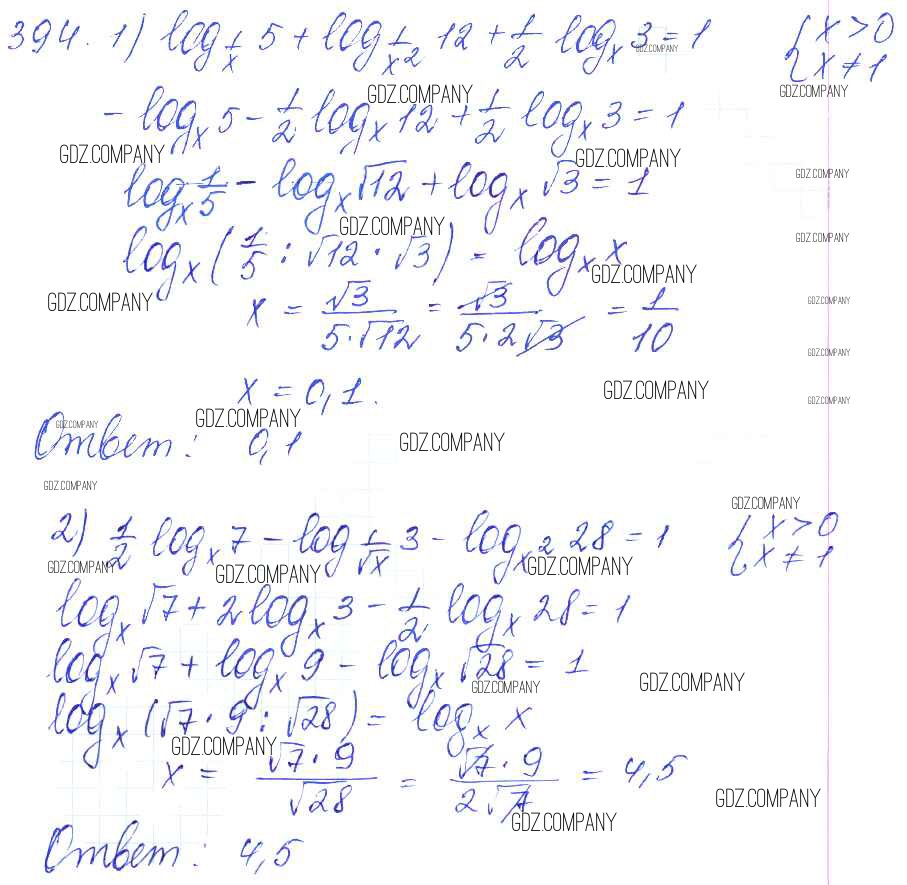 394. 1) log_{1/x} 5 + log_{1/x²} 12 + 1/2 log_x 3 = 1 { x > 0
GDZ.COMPANY
{ x ≠ 1
GDZ.COMPANY GDZ.COMPANY
- log_x 5 - 1/2 log_x 12 + 1/2 log_x 3 = 1
GDZ.COMPANY GDZ.COMPANY
GDZ.COMPANY
log_x 1/5 - log_x √12 + log_x √3 = 1
GDZ.COMPANY GDZ.COMPANY
log_x (1/5 : √12 · √3) = log_x x
GDZ.COMPANY
GDZ.COMPANY GDZ.COMPANY
x = √3/(5·√12) = √3/(5·2√3) = 1/10
GDZ.COMPANY
x = 0,1.
GDZ.COMPANY GDZ.COMPANY
GDZ.COMPANY GDZ.COMPANY
Ответ: 0,1
GDZ.COMPANY
GDZ.COMPANY
GDZ.COMPANY
2) 1/2 log_x 7 - log_{1/√x} 3 - log_{x²} 28 = 1 { x > 0
{ x ≠ 1
GDZ.COMPANY GDZ.COMPANY GDZ.COMPANY
log_x √7 + 2 log_x 3 - 1/2 log_x 28 = 1
log_x √7 + log_x 9 - log_x √28 = 1
GDZ.COMPANY GDZ.COMPANY
log_x (√7 · 9 : √28) = log_x x
GDZ.COMPANY
x = √7·9/√28 = √7·9/(2√7) = 4,5
GDZ.COMPANY
GDZ.COMPANY
Ответ: 4,5